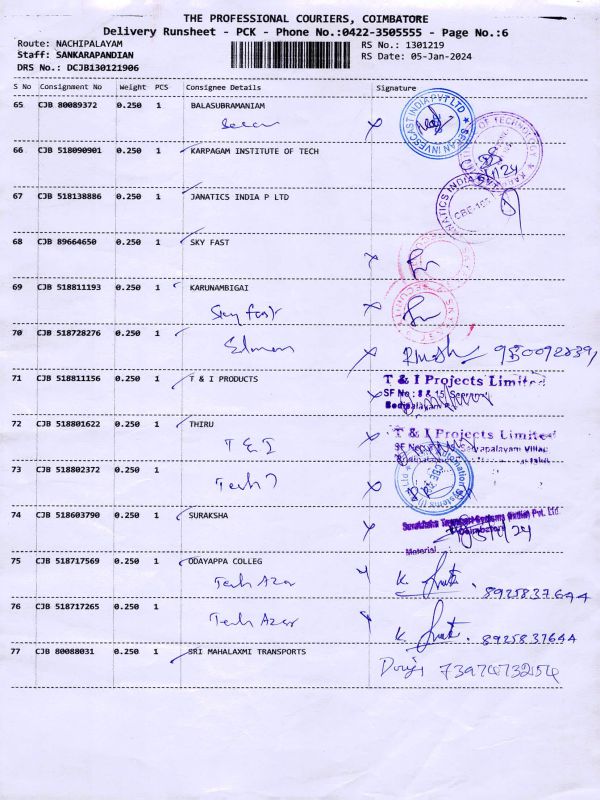 THE PROFESSIONAL COURIERS, COIMBATORE
Delivery Runsheet - PCK - Phone No.:0422-3505555 - Page No.:6
Route: NACHIPALAYAM
RS No.: 1301219
Staff: SANKARAPANDIAN
RS Date: 05-Jan-2024
DRS No.: DCJB130121906
S No Consignment No Weight PCS Consignee Details Signature
65 CJB 80089372 0.250 1 BALASUBRAMANIAM
66 CJB 518090901 0.250 1 KARPAGAM INSTITUTE OF TECH
67 CJB 518138886 0.250 1 JANATICS INDIA P LTD
68 CJB 89664650 0.250 1 SKY FAST
69 CJB 518811193 0.250 1 KARUNAMBIGAI
Sky fast
70 CJB 518728276 0.250 1
71 CJB 518811156 0.250 1 T & I PRODUCTS T & I Projects Limited
SF No: 8 & 15,
72 CJB 518801622 0.250 1 THIRU T & I Projects Limited
T & I
73 CJB 518802372 0.250 1
74 CJB 518603790 0.250 1 SURAKSHA
Material
75 CJB 518717569 0.250 1 ODAYAPPA COLLEG
Tech Azar 8925837644
76 CJB 518717265 0.250 1
Tech Azar 8925837644
77 CJB 80088031 0.250 1 SRI MAHALAXMI TRANSPORTS